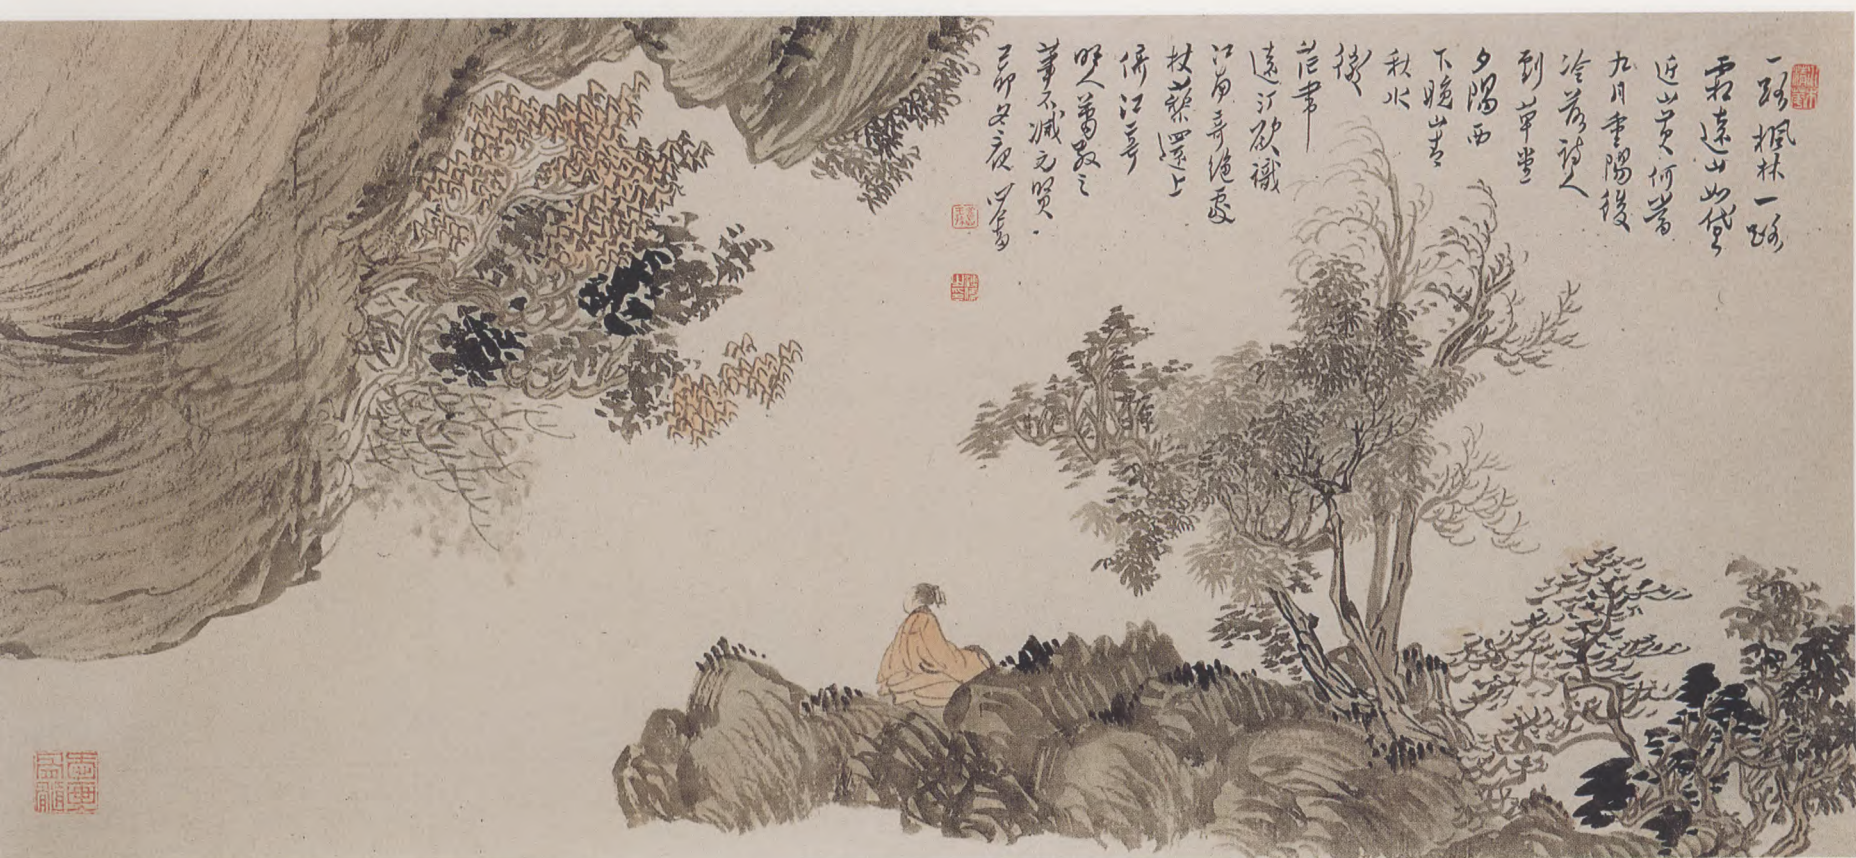 一路楓林一路
霜遠山如黛
近山黃何當
九月重陽後
冷落詩人
到草堂
夕陽西
下晚山青
秋水
微
茫帶
遠汀欲識
江南奇絕處
杖藜還上
併江亭
明人之
筆不減元賢
己卯冬夜 心畬